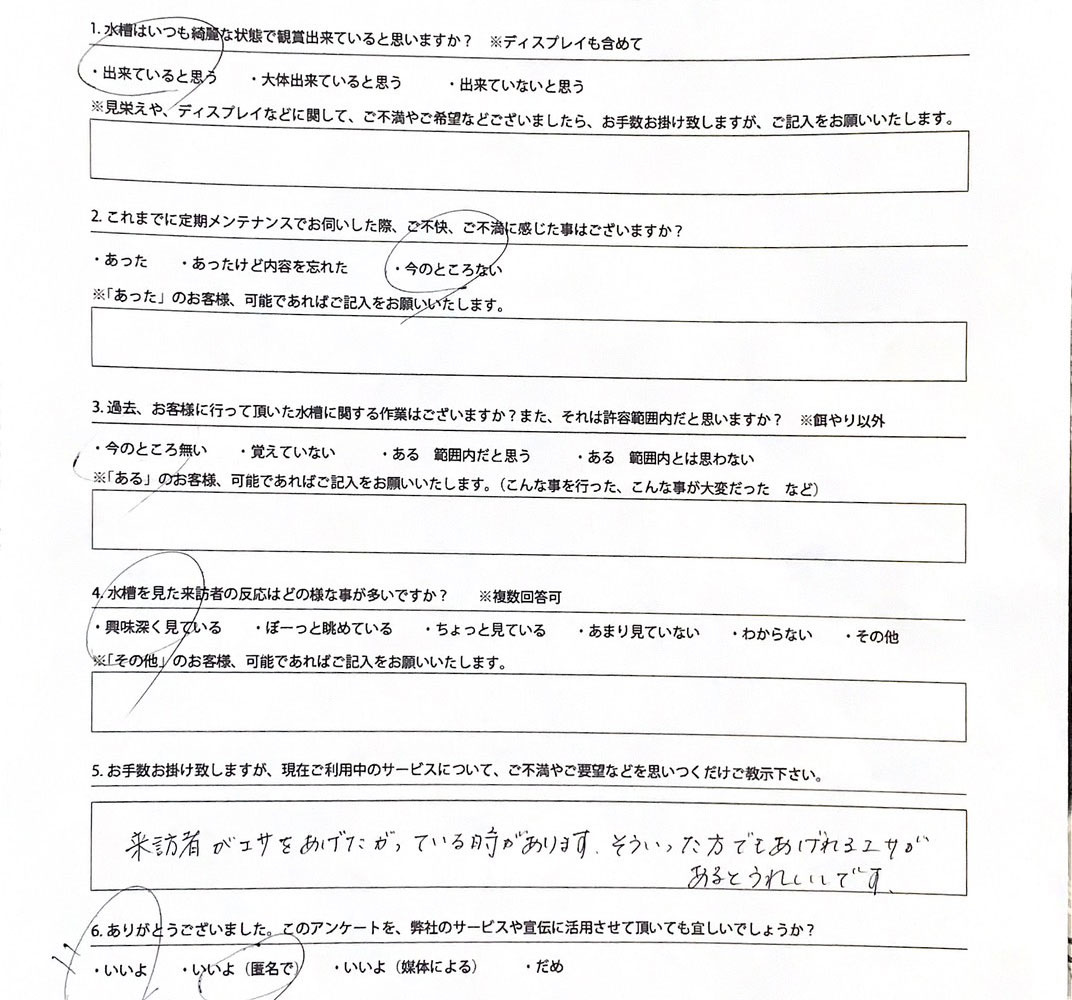 1. 水槽はいつも綺麗な状態で観賞出来ていると思いますか？　※ディスプレイも含めて
・出来ていると思う　・大体出来ていると思う　・出来ていないと思う
※見栄えや、ディスプレイなどに関して、ご不満やご希望などございましたら、お手数お掛け致しますが、ご記入をお願いいたします。
2. これまでに定期メンテナンスでお伺いした際、ご不快、ご不満に感じた事はございますか？
・あった　・あったけど内容を忘れた　・今のところない
※「あった」のお客様、可能であればご記入をお願いいたします。
3. 過去、お客様に行って頂いた水槽に関する作業はございますか？また、それは許容範囲内だと思いますか？　※餌やり以外
・今のところ無い　・覚えていない　・ある　範囲内だと思う　・ある　範囲内とは思わない
※「ある」のお客様、可能であればご記入をお願いいたします。（こんな事を行った、こんな事が大変だった　など）
4. 水槽を見た来訪者の反応はどの様な事が多いですか？　※複数回答可
・興味深く見ている　・ぼーっと眺めている　・ちょっと見ている　・あまり見ていない　・わからない　・その他
※「その他」のお客様、可能であればご記入をお願いいたします。
5. お手数お掛け致しますが、現在ご利用中のサービスについて、ご不満やご要望などを思いつくだけご教示下さい。
来訪者がエサをあげたがっている時があります。そういった方でもあげれるエサが
あるとうれしいです。
6. ありがとうございました。このアンケートを、弊社のサービスや宣伝に活用させて頂いても宜しいでしょうか？
・いいよ　・いいよ（匿名で）　・いいよ（媒体による）　・だめ